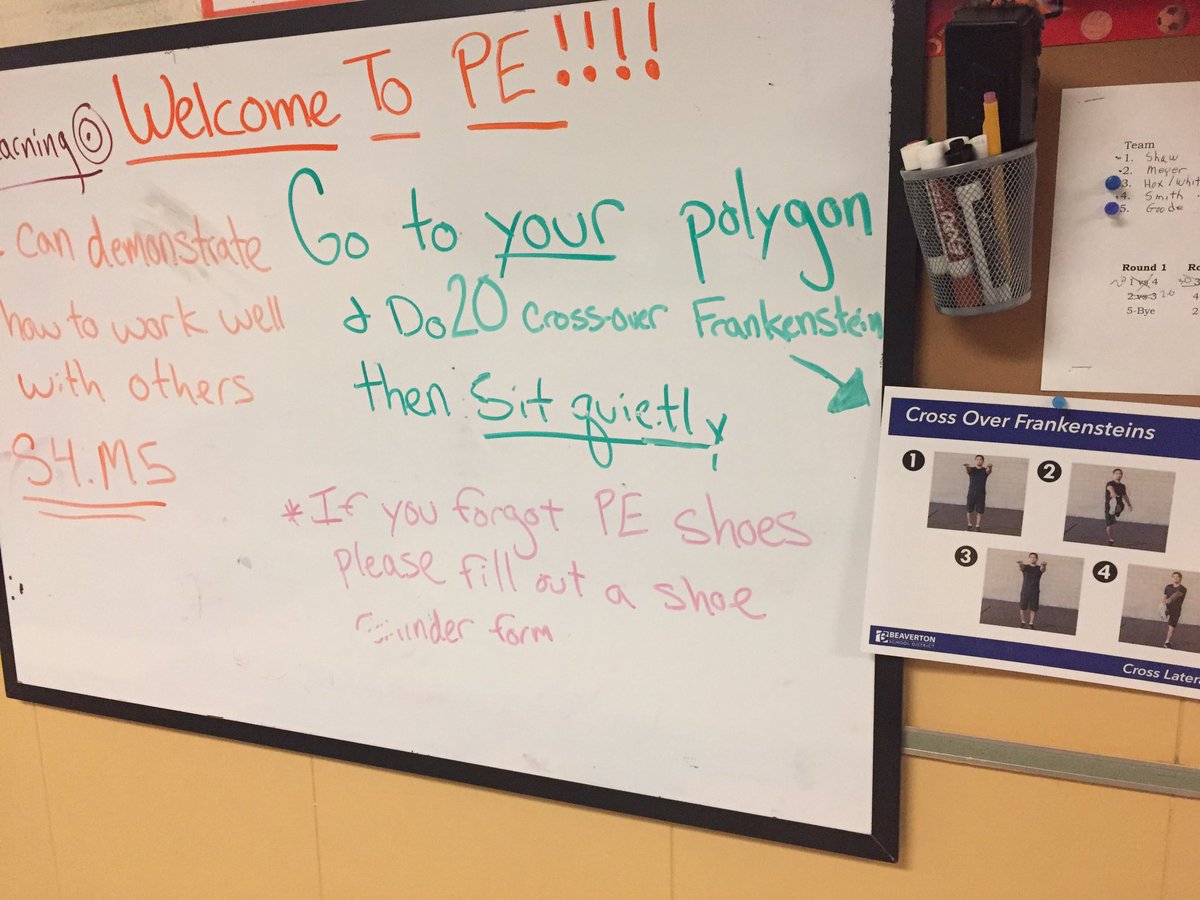 Welcome To PE!!!!
can demonstrate
how to work well
with others
S4.M5
Go to your polygon
& Do 20 Cross-over Frankenstein
then Sit quietly
*If you forgot PE shoes
please fill out a shoe
form
Team
1. Shaw
2. Meyer
3. Hox/Whit
4. Smith
5. Goode
Round 1
1 vs 4
2 vs 3
5-Bye
Cross Over Frankensteins
1
2
3
4
BEAVERTON
SCHOOL DISTRICT
Cross Latera